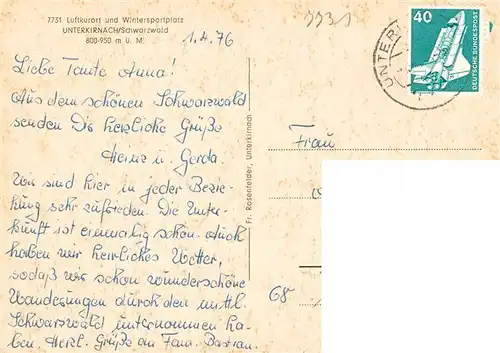 7731 Luftkurort und Wintersportplatz
UNTERKIRNACH/Schwarzwald
800-950 m ü. M.
1.4.76
7731
Liebe Tante Anna!
Aus dem schönen Schwarzwald
senden Dir herzliche Grüße
Heinz u. Gerda.
Wir sind hier in jeder Bezie-
hung sehr zufrieden. Die Unter-
kunft ist einmalig schön. Auch
haben wir herrliches Wetter,
sodaß wir schon wunderschöne
Wanderungen durch den mittl.
Schwarzwald unternommen ha-
ben. Herzl. Grüße an Fam. Bastian.
Fr. Rosenfelder, Unterkirnach
40
DEUTSCHE BUNDESPOST
UNTER
Frau
68